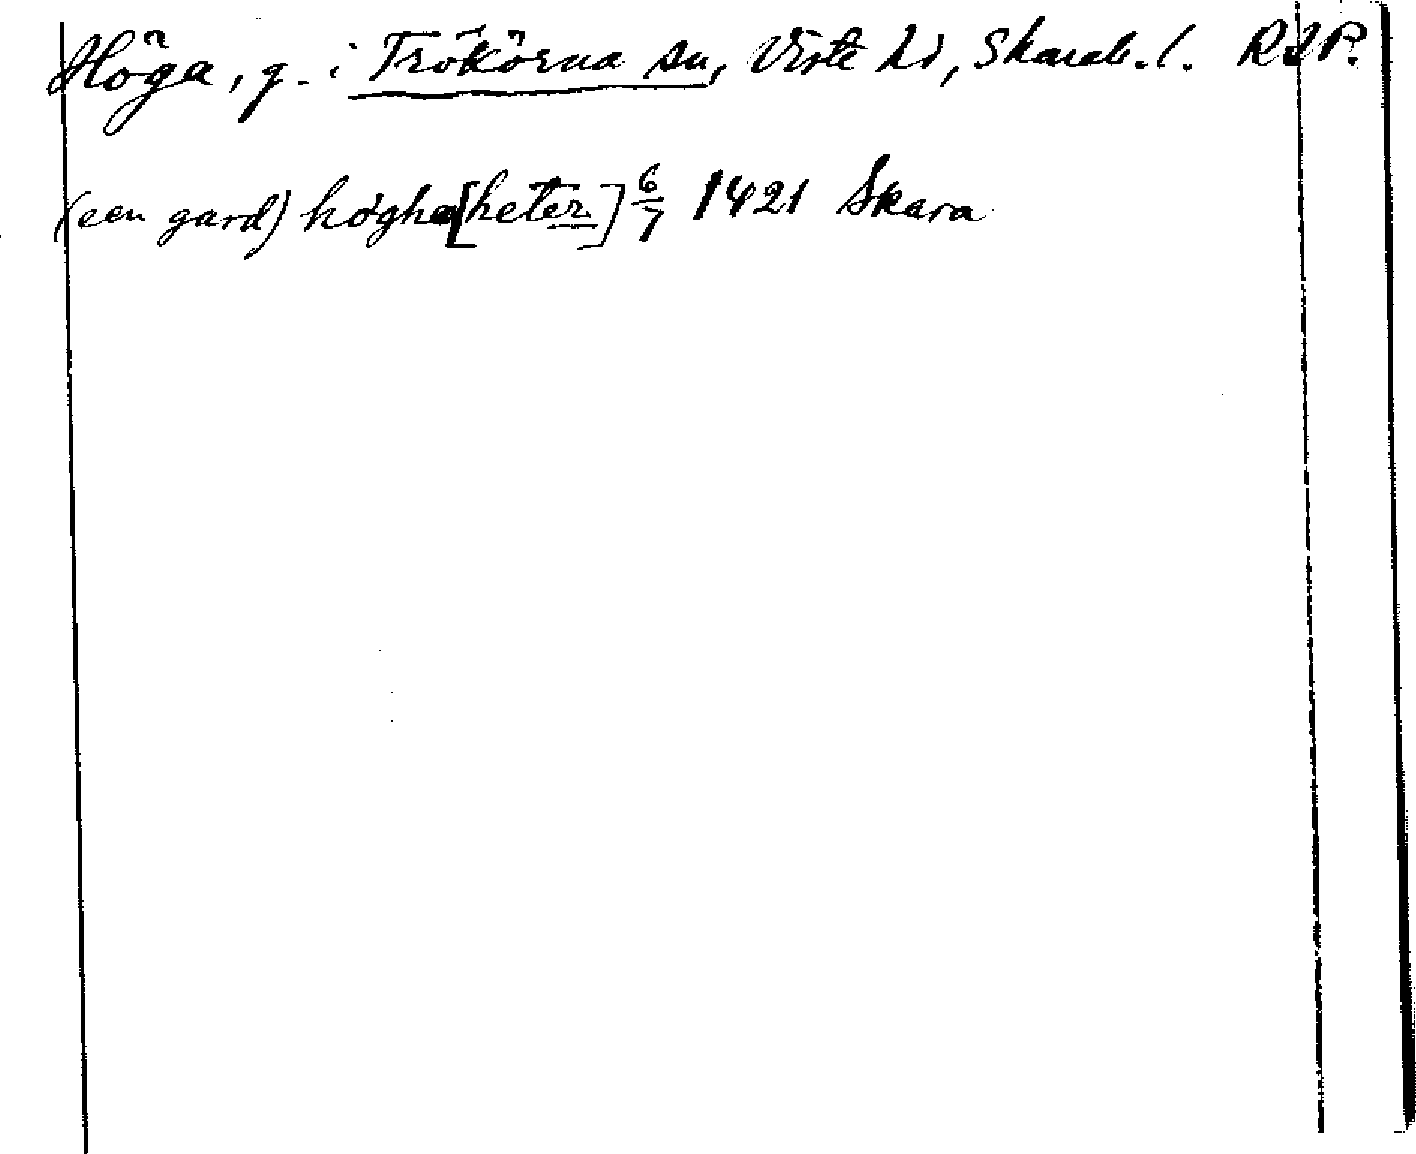 Höga, g. i Trökörna sn, Viste hd, Skarab. l. RAP.
(een gard) högha [heter] 6/7 1421 Skara